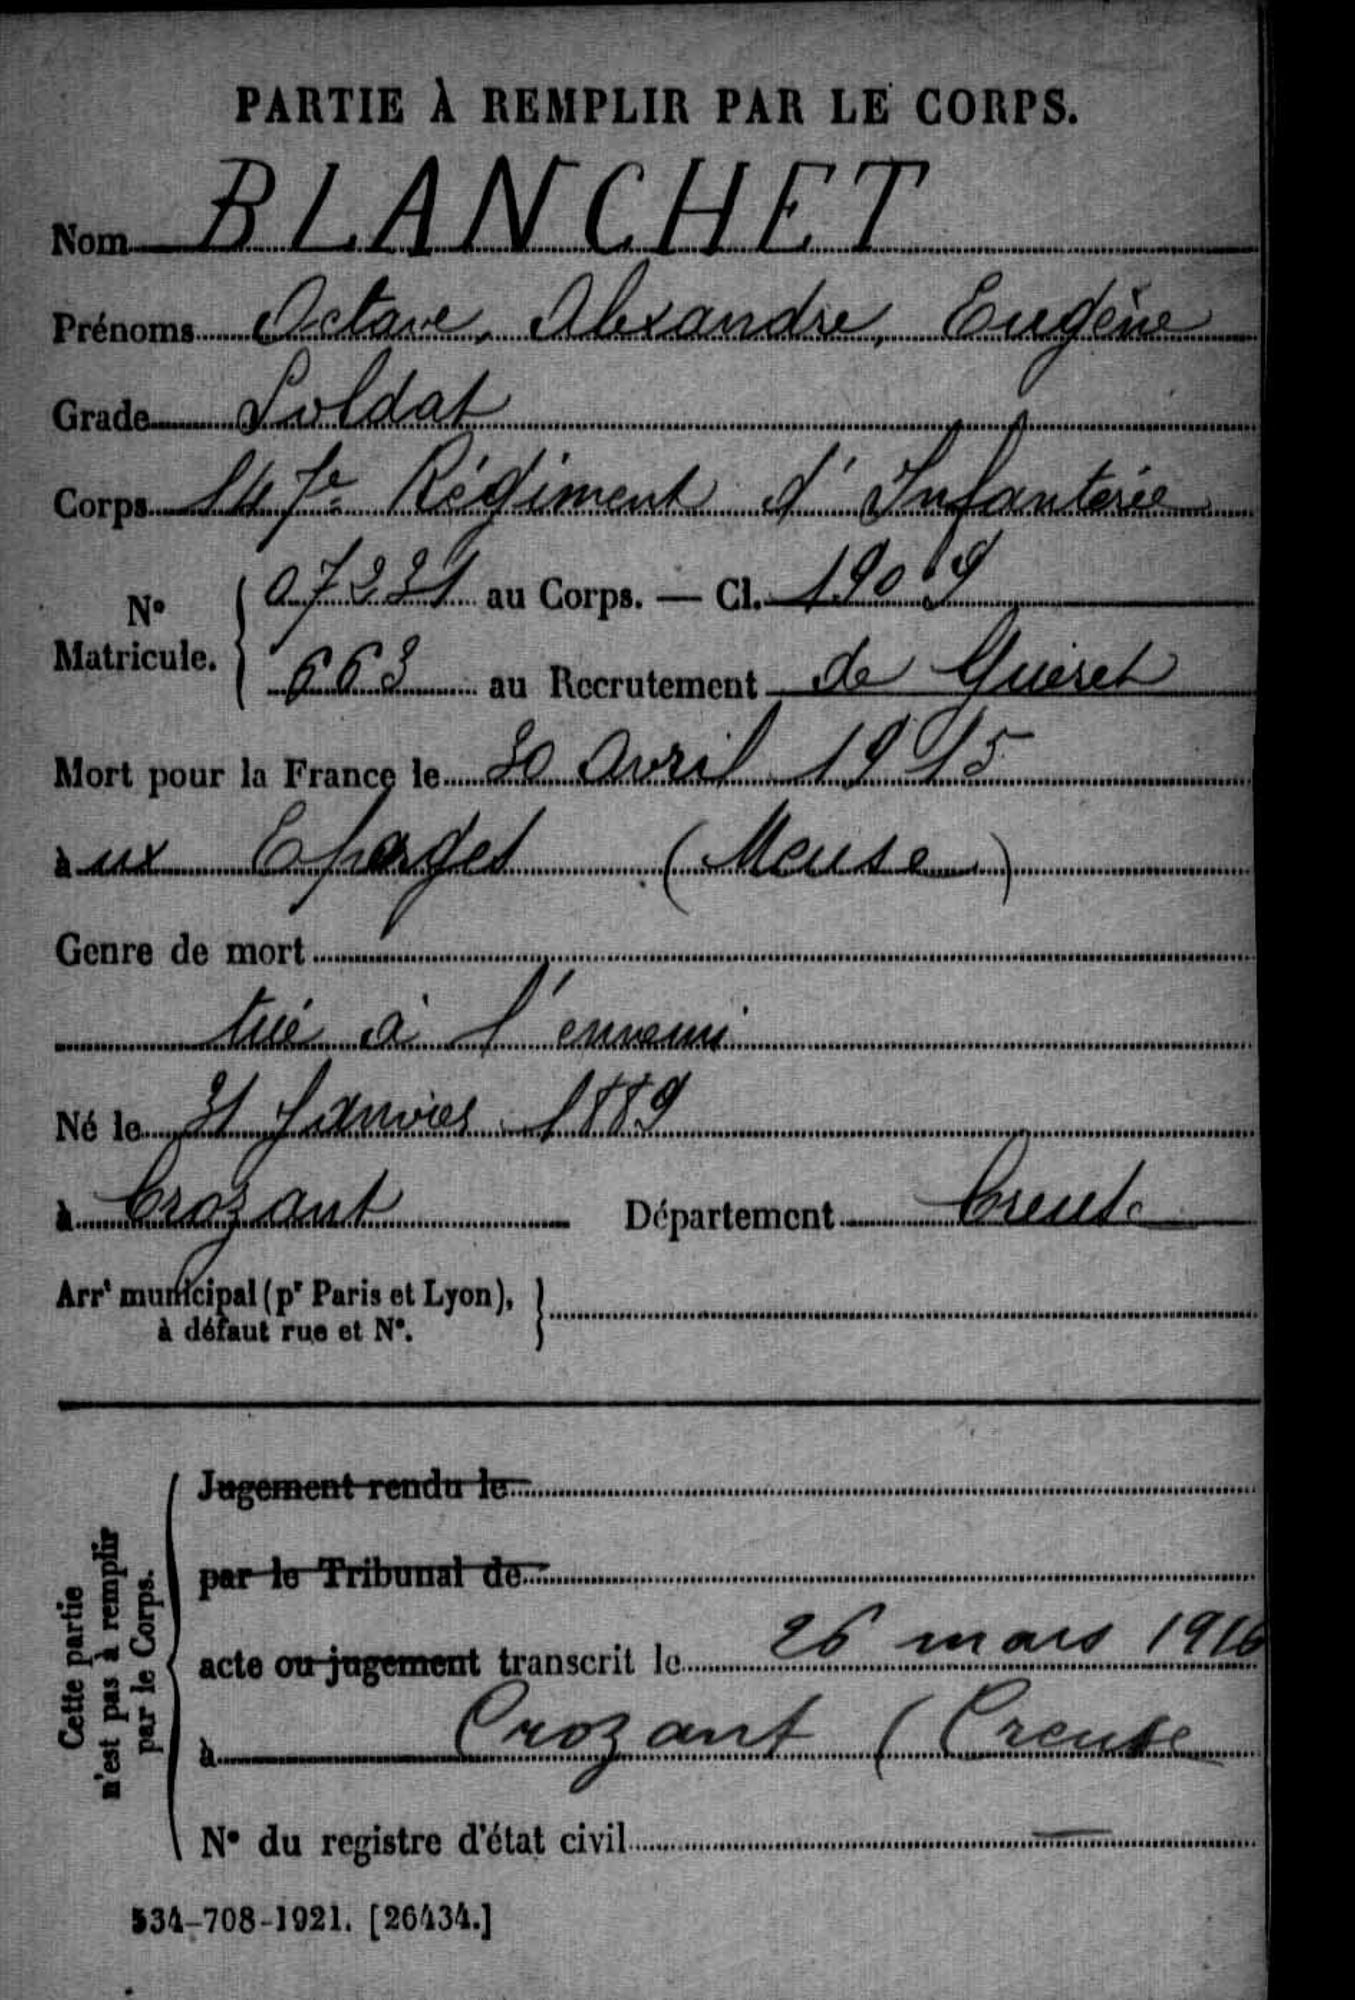 PARTIE À REMPLIR PAR LE CORPS.
Nom BLANCHET
Prénoms Octave, Alexandre, Eugène
Grade Soldat
Corps 147e Régiment d'Infanterie
N° Matricule. { 07231 au Corps. — Cl. 1909
663 au Recrutement de Guéret
Mort pour la France le 30 Avril 1915
aux Eparges (Meuse)
Genre de mort
tué à l'ennemi
Né le 31 Janvier 1889
à Crozant Département Creuse
Arrt municipal (pr Paris et Lyon),
à défaut rue et N°.
Jugement rendu le
par le Tribunal de
acte ou jugement transcrit le 26 mars 1916
à Crozant (Creuse
N° du registre d'état civil —
Cette partie
n'est pas à remplir
par le Corps.
534-708-1921. [26434.]